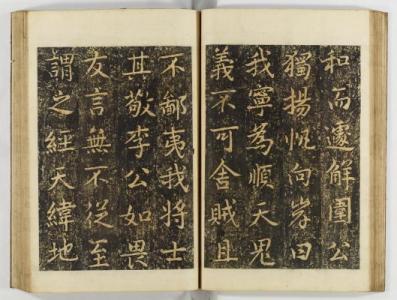 和而遽解圍公
獨揚帆向岸曰
我寧為順天鬼
義不可舍賊且
不鄙夷我将士
其敬李公如畏
友言無不從至
謂之經天緯地